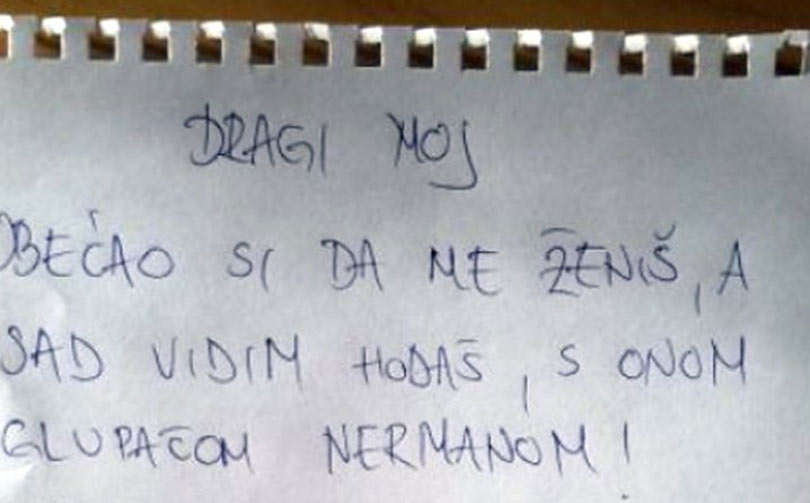 DRAGI MOJ
OBEĆAO SI DA ME ŽENIŠ, A
SAD VIDIM HODAŠ, S ONOM
GLUPAČOM NERMANOM!